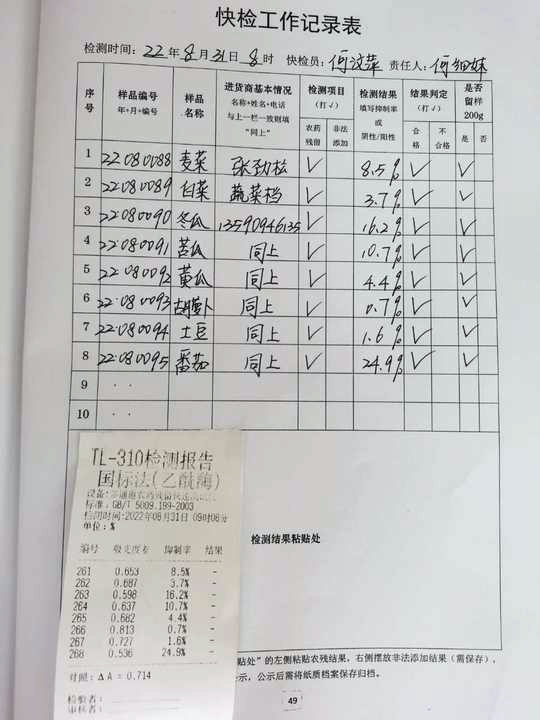 快检工作记录表
检测时间：22年8月31日8时 快检员：何汶萍 责任人：何细妹
序号 样品编号 年+月+编号 样品名称 进货商基本情况 名称+姓名+电话 与上一栏一致则填 “同上” 检测项目 （打√） 农药残留 非法添加 检测结果 填写抑制率或 阴性/阳性 结果判定 （打√） 合格 不合格 是否留样 200g 是 否
1 22·080088 麦菜 张劲松 √ 8.5% √ √
2 22·080089 白菜 蔬菜档 √ 3.7% √ √
3 22·080090 冬瓜 13590946135 √ 16.2% √ √
4 22·080091 苦瓜 同上 √ 10.7% √ √
5 22·080092 黄瓜 同上 √ 4.4% √ √
6 22·080093 胡萝卜 同上 √ 0.7% √ √
7 22·080094 土豆 同上 √ 1.6% √ √
8 22·080095 番茄 同上 √ 24.9% √ √
9 · ·
10 · ·
TL-310检测报告
国标法(乙酰酶)
标准：GB/T 5009.199-2003
检测时间:2022年08月31日 09时06分
单位：%
编号 吸光度差 抑制率 结果
261 0.653 8.5% -
262 0.687 3.7% -
263 0.598 16.2% -
264 0.637 10.7% -
265 0.682 4.4% -
266 0.813 0.7% -
267 0.727 1.6% -
268 0.536 24.9% -
对照：ΔA = 0.714
检验者：
审核者：
检测结果粘贴处
粘处”的左侧粘贴农残结果，右侧摆放非法添加结果（需保存），
示，公示后需将纸质档案保存归档。
49